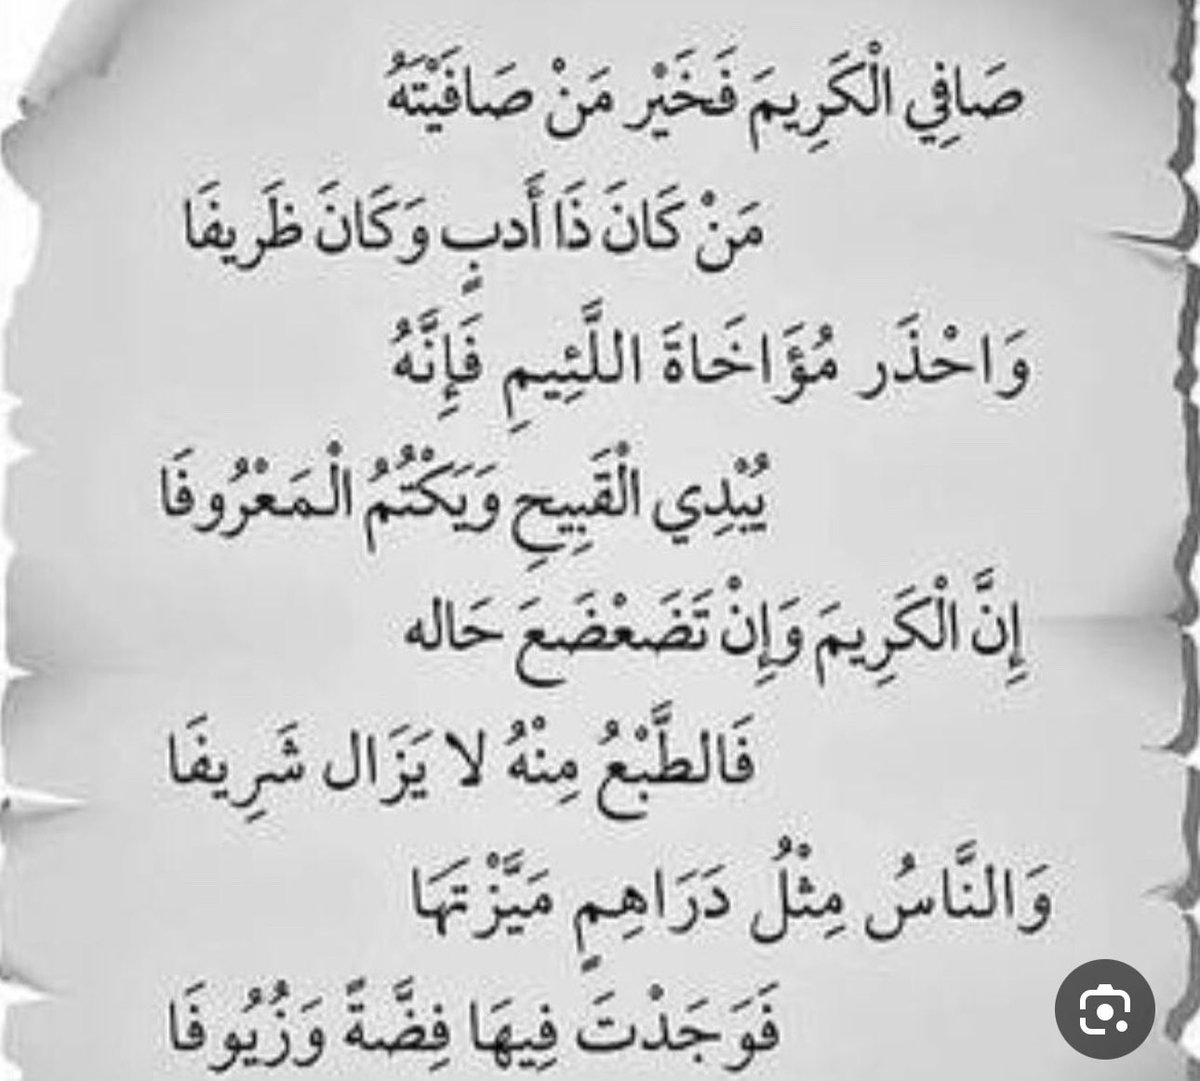 صَافِي الْكَرِيمَ فَخَيْر مَنْ صَافَيْتَهُ
مَنْ كَانَ ذَا أَدبٍ وَكَانَ ظَريفَا
وَاحْذَر مُؤَاخَاةَ اللَّئِيمِ فَإِنَّهُ
يُبْدِي الْقَبِيحِ وَيَكْتُمُ الْمَعْرُوفَا
إِنَّ الْكَرِيمَ وَإِنْ تَضَعْضَعَ حَاله
فَالطَّبْعُ مِنْهُ لا يَزَال شَرِيفَا
وَالنَّاسُ مِثْلُ دَرَاهِمٍ مَيَّزْتَهَا
فَوَجَدْتَ فِيهَا فِضَّةً وَزُيُوفَا